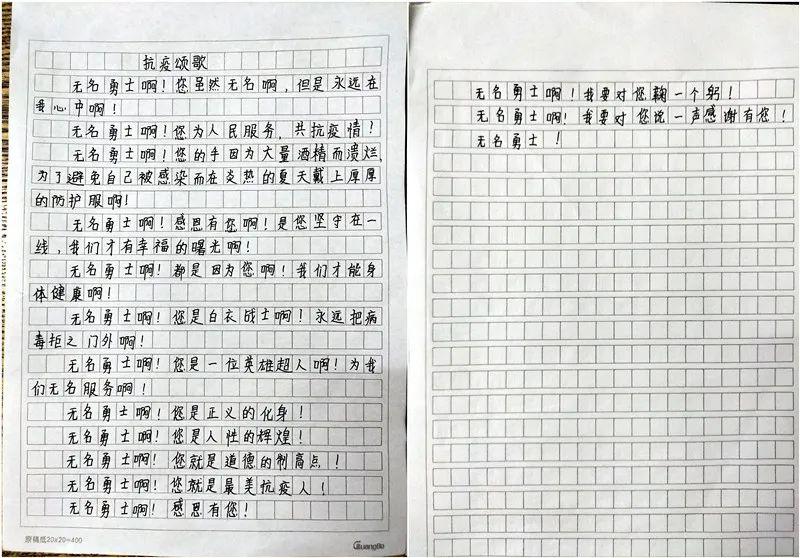 抗疫颂歌
无名勇士啊!您虽然无名啊,但是永远在
我心中啊!
无名勇士啊!您为人民服务,共抗疫情!
无名勇士啊!您的手因为大量酒精而溃烂,
为了避免自己被感染而在炎热的夏天戴上厚厚
的防护服啊!
无名勇士啊!感恩有您啊!是您坚守在一
线,我们才有幸福的曙光啊!
无名勇士啊!都是因为您啊!我们才能身
体健康啊!
无名勇士啊!您是白衣战士啊!永远把病
毒拒之门外啊!
无名勇士啊!您是一位英雄超人啊!为我
们无名服务啊!
无名勇士啊!您是正义的化身!
无名勇士啊!您是人性的辉煌!
无名勇士啊!您就是道德的制高点!
无名勇士啊!您就是最美抗疫人!
无名勇士啊!感恩有您!
原稿纸20x20=400
GuangBo
无名勇士啊!我要对您鞠一个躬!
无名勇士啊!我要对您说一声感谢有您!
无名勇士!